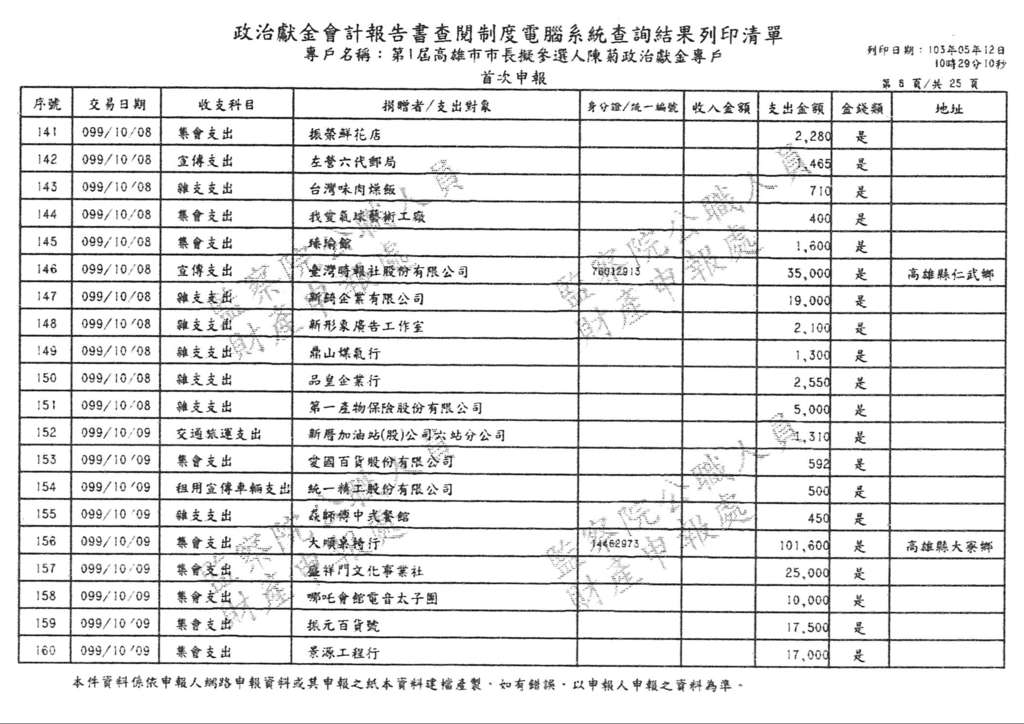 政治獻金會計報告書查閱制度電腦系統查詢結果列印清單
專戶名稱：第1屆高雄市市長擬參選人陳菊政治獻金專戶
列印日期：103年05年12日
10時29分10秒
首次申報
第 8 頁/共 25 頁
序號 交易日期 收支科目 捐贈者/支出對象 身分證/統一編號 收入金額 支出金額 金錢類 地址
141 099/10/08 集會支出 振榮鮮花店 2,280 是
142 099/10/08 宣傳支出 左營六代郵局 1,465 是
143 099/10/08 雜支支出 台灣味肉燥飯 710 是
144 099/10/08 集會支出 我愛氣球藝術工廠 400 是
145 099/10/08 集會支出 瑜館 1,600 是
146 099/10/08 宣傳支出 臺灣時報社股份有限公司 76012913 35,000 是 高雄縣仁武鄉
147 099/10/08 雜支支出 新綺企業有限公司 19,000 是
148 099/10/08 雜支支出 新形象廣告工作室 2,100 是
149 099/10/08 雜支支出 鼎山煤氣行 1,300 是
150 099/10/08 雜支支出 品皇企業行 2,550 是
151 099/10/08 雜支支出 第一產物保險股份有限公司 5,000 是
152 099/10/09 交通旅運支出 新曆加油站(股)公司六站分公司 1,310 是
153 099/10/09 集會支出 愛國百貨股份有限公司 592 是
154 099/10/09 租用宣傳車輛支出 統一精工股份有限公司 500 是
155 099/10/09 雜支支出 師傅中式餐館 450 是
156 099/10/09 集會支出 大順桌椅行 14462973 101,600 是 高雄縣大寮鄉
157 099/10/09 集會支出 盛祥門文化事業社 25,000 是
158 099/10/09 集會支出 哪吒會館電音太子團 10,000 是
159 099/10/09 集會支出 振元百貨號 17,500 是
160 099/10/09 集會支出 景源工程行 17,000 是
監察院公職人員
財產申報處
監察院公職人員
財產申報處
監察院公職人員
財產申報處
監察院公職人員
財產申報處
本件資料係依申報人網路申報資料或其申報之紙本資料建檔產製，如有錯誤，以申報人申報之資料為準。